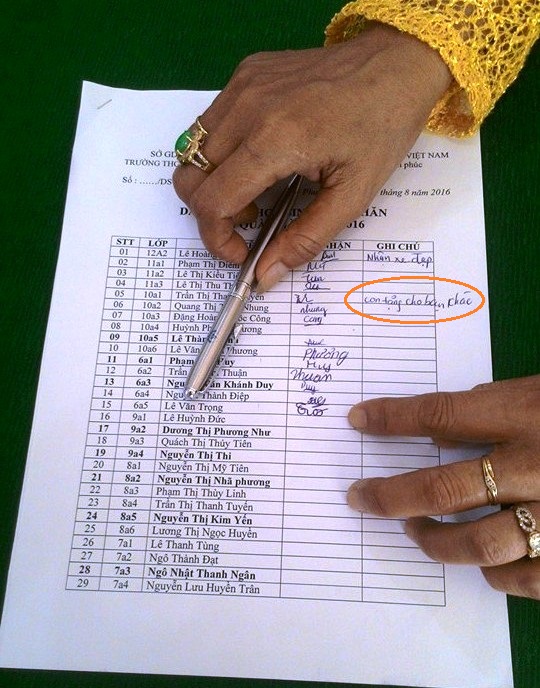 SỞ GD VIỆT NAM
TRƯỜNG THC phúc
Số : ....../DS tháng 8 - 2016
2016
STT LỚP NHẬN GHI CHÚ
01 12A2 Lê Hoàng Nhận xe đạp
02 11a1 Phạm Thị Diễm
03 11a2 Lê Thị Kiều
04 11a3 Lê Thị Thu
05 10a1 Trần Thị Thanh con tặng cho bạn khác
06 10a2 Quang Thị Nhung nhung
07 10a3 Đặng Hoàng Công Cong
08 10a4 Huỳnh Phương
09 10a5 Lê Thành
10 10a6 Lê Văn Phương Phương
11 6a1 Phạm Duy Huy
12 6a2 Trần Thuận Thuan
13 6a3 Khánh Duy Duy
14 6a4 Nguyễn Thành Điệp
15 6a5 Lê Văn Trọng
16 9a1 Lê Huỳnh Đức
17 9a2 Dương Thị Phương Như
18 9a3 Quách Thị Thúy Tiên
19 9a4 Nguyễn Thị Thi
20 8a1 Nguyễn Thị Mỹ Tiên
21 8a2 Nguyễn Thị Nhã phương
22 8a3 Phạm Thị Thùy Linh
23 8a4 Trần Thị Thanh Tuyền
24 8a5 Nguyễn Thị Kim Yến
25 8a6 Lương Thị Ngọc Huyền
26 7a1 Lê Thanh Tùng
27 7a2 Ngô Thành Đạt
28 7a3 Ngô Nhật Thanh Ngân
29 7a4 Nguyễn Lưu Huyền Trân